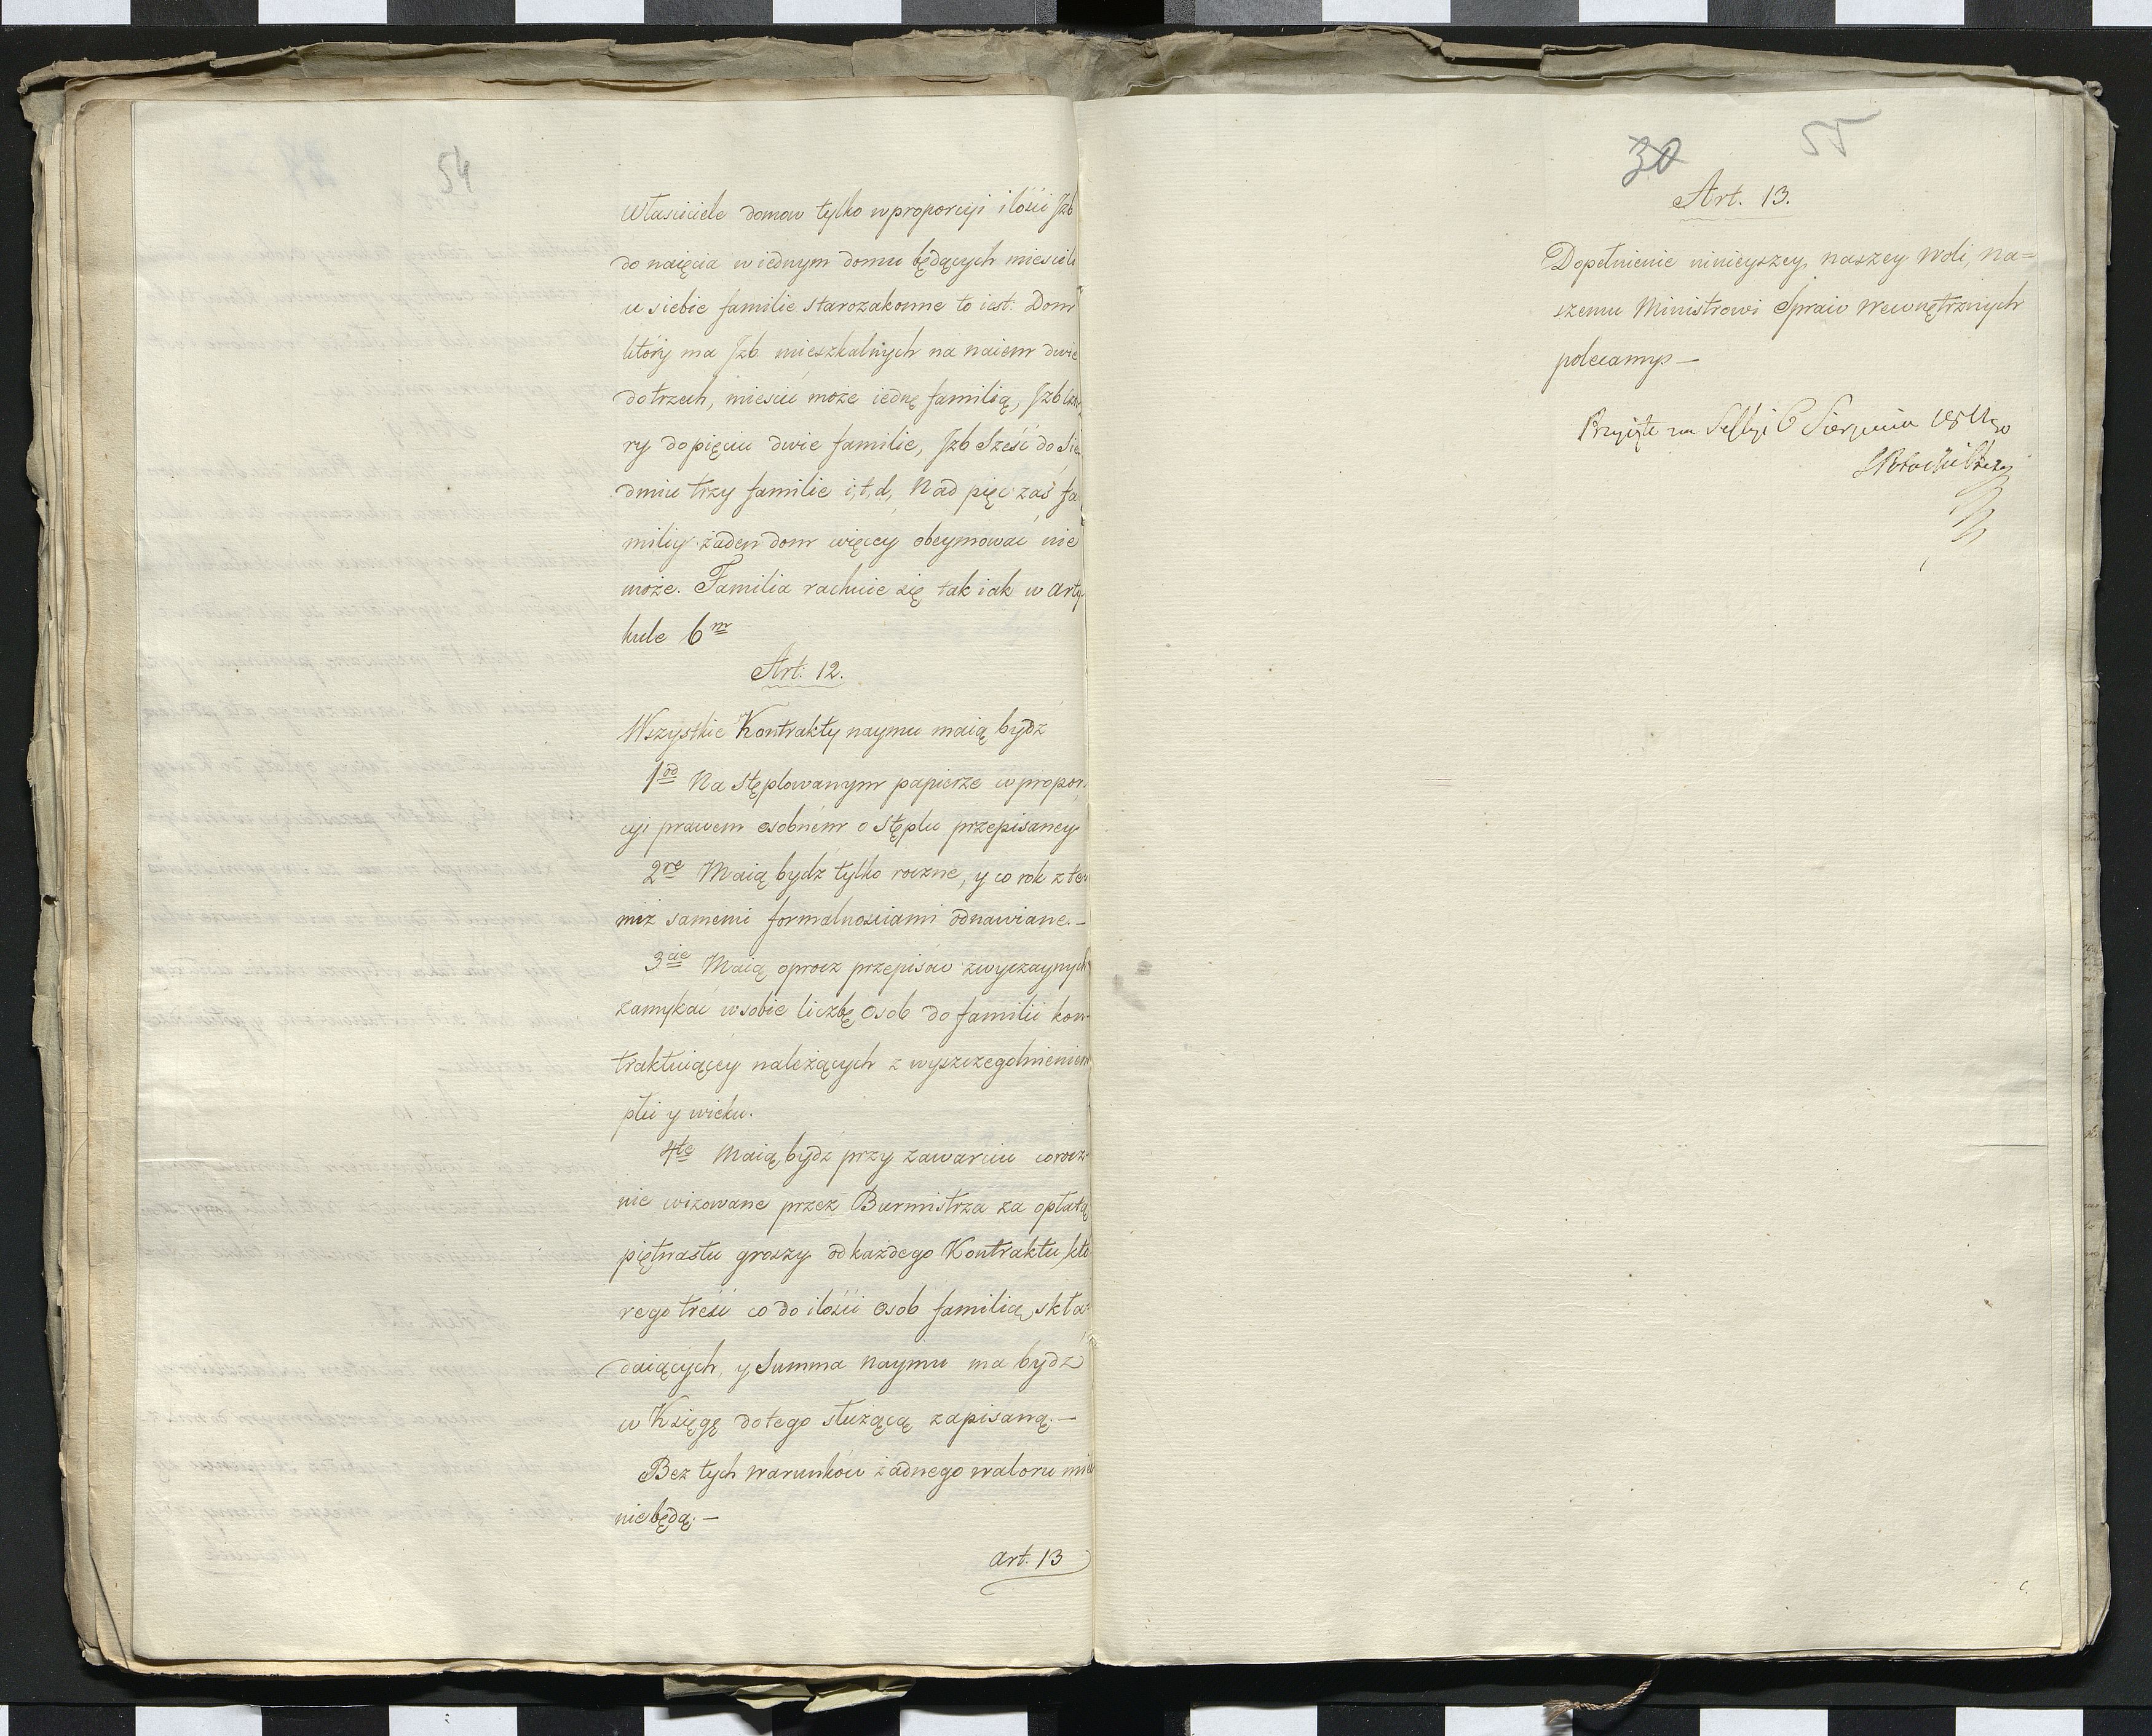 54
Właściciele domow tylko w proporcyi ilości Jzb
do naięcia w iednym domu będących mieścili
u siebie familie starozakonne to iest: Dom
ktory ma Jzb mieszkalnych na naiem dwie
do trzech, mieścić może iednę familią, Jzb czte
ry do pięciu dwie familie, Jzb sześć do sie
dmiu trzy familie i, t, d, Nad pięć zaś fa
miliy żaden dom więcey obeymować nie
może. Familia rachuie się tak iak w arty
kule 6m
Art: 12.
Wszystkie Kontrakty naymu maią bydź
1od Na stęplowanym papierze w propor
cyi prawem osobnem o stęplu przepisaney
2re Maią bydź tylko roczne, y co rok z te
miż samemi formalnościami odnawiane. —
3cie Maią oprocz przepisow zwyczaynych
zamykać w sobie liczbę osob do familii kon-
traktuiącey należących z wyszczegolnieniem
płci y wieku.
4te Maią bydź przy zawarciu corocz-
nie wizowane przez Burmistrza za opłatą
piętnastu groszy od każdego Kontraktu, kto
rego treść co do ilości osob familią skła-
daiących, y Summa naymu ma bydź
w Księgę do tego służącą zapisaną. —
Bez tych warunkow żadnego waloru mieć
nie będą. —
art. 13
30 55
Art. 13.
Dopełnienie ninieyszey naszey woli, na=
szemu Ministrowi Spraw Wewnętrznych
polecamy —
Przyięte na Sessyi 6 Sierpnia